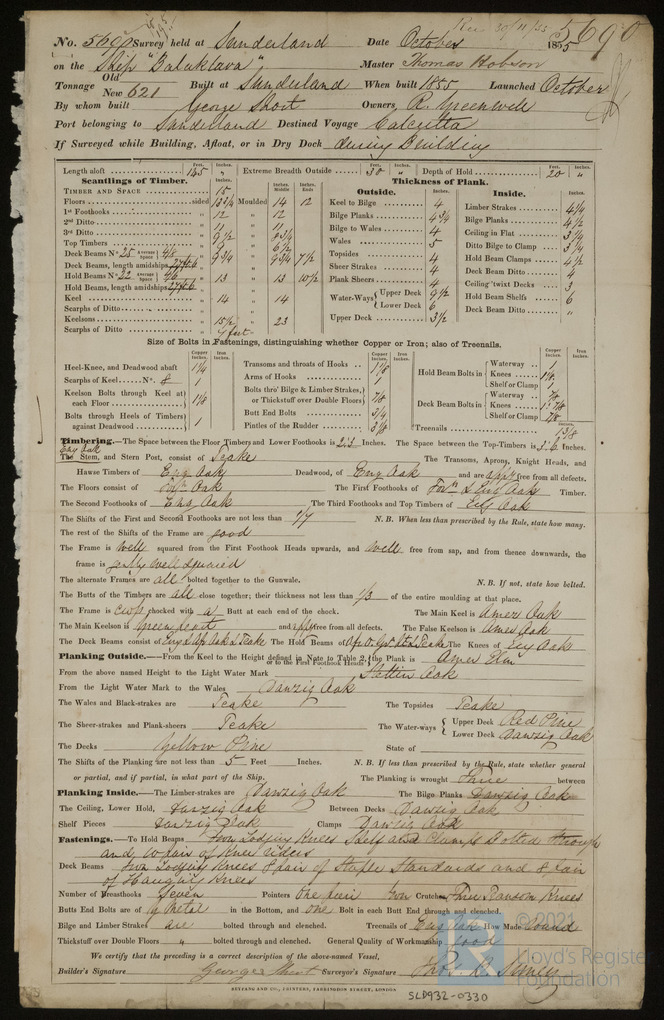 Rec 30/11/55 5690
No. 5690 Survey held at Sunderland Date October 1855
on the Ship "Balaklava" Master Thomas Hobson
Tonnage Old New 621 Built at Sunderland When built 1855 Launched October
By whom built George Short Owners, R. Greenwell
Port belonging to Sunderland Destined Voyage Calcutta
If Surveyed while Building, Afloat, or in Dry Dock during Building
Length aloft 145 Feet. Inches. Extreme Breadth Outside 30 Feet. Inches. Depth of Hold 20 Feet. Inches.
Scantlings of Timber.
TIMBER AND SPACE 15
Floors sided 13¾ Moulded 14 12
1st Foothooks 12 12
2nd Ditto 11 11
3rd Ditto 9½
Top Timbers 9 6½
Deck Beams No. 25 Average Space 4/8 9¾ 9¾ 7½
Deck Beams, length amidships
Hold Beams No. 22 Average Space 13 13 10½
Hold Beams, length amidships
Keel 14 14
Scarphs of Ditto
Keelsons 15½ 23
Scarphs of Ditto 7 feet
Thickness of Plank.
Outside.
Keel to Bilge 4
Bilge Planks 4¾
Bilge to Wales 4
Wales 5
Topsides 4
Sheer Strakes 4
Plank Sheers 4
Water-Ways Upper Deck 9½
Lower Deck 6
Upper Deck 3½
Inside.
Limber Strakes 4¼
Bilge Planks 4½
Ceiling in Flat 3¼
Ditto Bilge to Clamp 3¼
Hold Beam Clamps 4½
Deck Beam Ditto 4
Ceiling 'twixt Decks 3
Hold Beam Shelfs 6
Deck Beam Ditto "
Size of Bolts in Fastenings, distinguishing whether Copper or Iron; also of Treenails.
Copper Inches. Iron Inches.
Heel-Knee, and Deadwood abaft 1¼
Scarphs of Keel No. 8 1
Keelson Bolts through Keel at each Floor 1⅛
Bolts through Heels of Timbers against Deadwood 1
Transoms and throats of Hooks 1⅛
Arms of Hooks 1
Bolts thro' Bilge & Limber Strakes, or Thickstuff over Double Floors 7/8
Butt End Bolts 3/4
Pintles of the Rudder 3⅛
Hold Beam Bolts in Waterway 1
Knees 1⅛
Shelf or Clamp 1
Deck Beam Bolts in Waterway 7/8
Knees 1 7/8
Shelf or Clamp 7/8
Treenails 1 3/8
Timbering.—The Space between the Floor Timbers and Lower Foothooks is Inches. The Space between the Top-Timbers is Inches.
Eng Oak
The Stem, and Stern Post, consist of Teake The Transoms, Aprons, Knight Heads, and
Hawse Timbers of Eng Oak Deadwood, of Eng Oak and are free from all defects.
The Floors consist of Oak The First Foothooks of & Eng Oak Timber.
The Second Foothooks of Eng Oak The Third Foothooks and Top Timbers of Eng Oak
The Shifts of the First and Second Foothooks are not less than N.B. When less than prescribed by the Rule, state how many.
The rest of the Shifts of the Frame are good
The Frame is well squared from the First Foothook Heads upwards, and well free from sap, and from thence downwards, the
frame is well squared
The alternate Frames are all bolted together to the Gunwale. N.B. If not, state how bolted.
The Butts of the Timbers are all close together; their thickness not less than 1/3 of the entire moulding at that place.
The Frame is chocked with a Butt at each end of the chock. The Main Keel is Amer Oak
The Main Keelson is Greenheart and free from all defects. The False Keelson is Amer Oak
The Deck Beams consist of Eng & Af Oak & Teake The Hold Beams of Teake The Knees of Eng Oak
Planking Outside.—From the Keel to the Height defined in Note to Table 2, or to the First Foothook Heads the Plank is Amer Elm
From the above named Height to the Light Water Mark Stettin Oak
From the Light Water Mark to the Wales Danzig Oak
The Wales and Black-strakes are Teake The Topsides Teake
The Sheer-strakes and Plank-sheers Teake The Water-ways Upper Deck Red Pine
Lower Deck Danzig Oak
The Decks Yellow Pine State of
The Shifts of the Planking are not less than 5 Feet Inches. N.B. If less than prescribed by the Rule, state whether general
or partial, and if partial, in what part of the Ship. The Planking is wrought Three between
Planking Inside.—The Limber-strakes are Danzig Oak The Bilge Planks Danzig Oak
The Ceiling, Lower Hold, Danzig Oak Between Decks Danzig Oak
Shelf Pieces Danzig Oak Clamps Danzig Oak
Fastenings.—To Hold Beams Iron Lodging Knees Shelf and Clamps Bolted through
and 10 pair of Knee riders
Deck Beams Iron Lodging Knees pair of Staple Standards and 8 pair
of Hanging Knees
Number of Breasthooks Seven Pointers One pair Iron Crutches Three Transom Knees
Butts End Bolts are of Y Metal in the Bottom, and one Bolt in each Butt End through and clenched.
Bilge and Limber Strakes are bolted through and clenched. Treenails of Eng Oak How Made Round
Thickstuff over Double Floors " bolted through and clenched. General Quality of Workmanship Good
We certify that the preceding is a correct description of the above-named Vessel.
Builder's Signature George Short Surveyor's Signature
SEYFANG AND CO., PRINTERS, FARRINGDON STREET, LONDON
SLD932-0330
© 2021
Lloyd's Register
Foundation